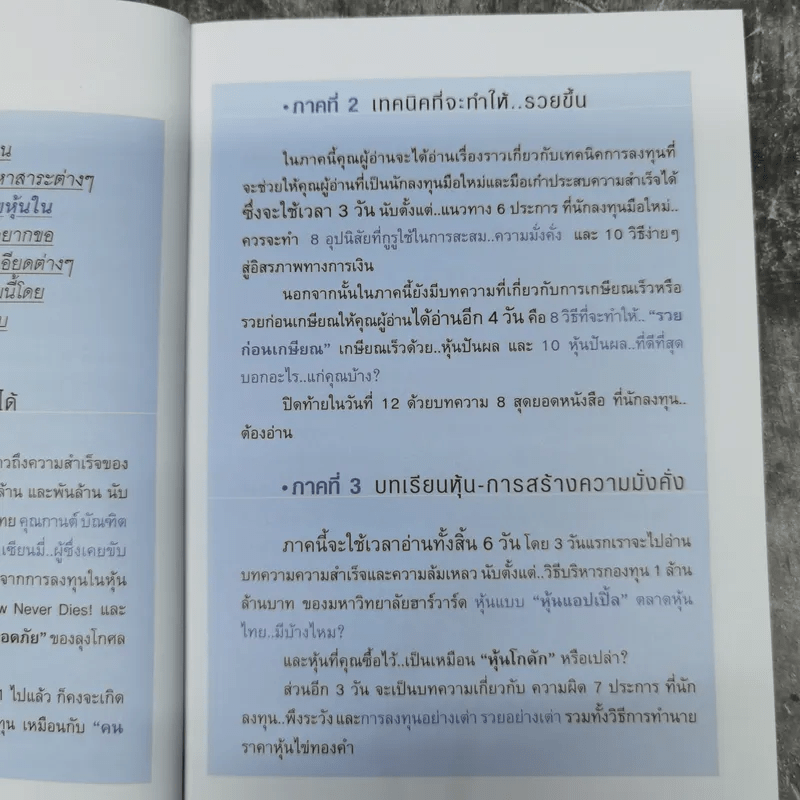 น
หาสาระต่างๆ
หุ้นใน
อยากขอ
อียดต่างๆ
นี้โดย
ได้
วถึงความสำเร็จของ
ล้าน และพันล้าน นับ
ทย คุณกานต์ บัณฑิต
เซียนมี่..ผู้ซึ่งเคยขับ
จากการลงทุนในหุ้น
w Never Dies! และ
อดภัย" ของลุงโกศล
1 ไปแล้ว ก็คงจะเกิด
ทุน เหมือนกับ "คน
•ภาคที่ 2 เทคนิคที่จะทำให้..รวยขึ้น
ในภาคนี้คุณผู้อ่านจะได้อ่านเรื่องราวเกี่ยวกับเทคนิคการลงทุนที่
จะช่วยให้คุณผู้อ่านที่เป็นนักลงทุนมือใหม่และมือเก๋าประสบความสำเร็จได้
ซึ่งจะใช้เวลา 3 วัน นับตั้งแต่..แนวทาง 6 ประการ ที่นักลงทุนมือใหม่..
ควรจะทำ 8 อุปนิสัยที่กูรูใช้ในการสะสม..ความมั่งคั่ง และ 10 วิธีง่ายๆ
สู่อิสรภาพทางการเงิน
นอกจากนั้นในภาคนี้ยังมีบทความที่เกี่ยวกับการเกษียณเร็วหรือ
รวยก่อนเกษียณให้คุณผู้อ่านได้อ่านอีก 4 วัน คือ 8 วิธีที่จะทำให้.. "รวย
ก่อนเกษียณ" เกษียณเร็วด้วย..หุ้นปันผล และ 10 หุ้นปันผล..ที่ดีที่สุด
บอกอะไร..แก่คุณบ้าง?
ปิดท้ายในวันที่ 12 ด้วยบทความ 8 สุดยอดหนังสือ ที่นักลงทุน..
ต้องอ่าน
•ภาคที่ 3 บทเรียนหุ้น-การสร้างความมั่งคั่ง
ภาคนี้จะใช้เวลาอ่านทั้งสิ้น 6 วัน โดย 3 วันแรกเราจะไปอ่าน
บทความความสำเร็จและความล้มเหลว นับตั้งแต่..วิธีบริหารกองทุน 1 ล้าน
ล้านบาท ของมหาวิทยาลัยฮาร์วาร์ด หุ้นแบบ "หุ้นแอปเปิ้ล" ตลาดหุ้น
ไทย..มีบ้างไหม?
และหุ้นที่คุณซื้อไว้..เป็นเหมือน "หุ้นโกดัก" หรือเปล่า?
ส่วนอีก 3 วัน จะเป็นบทความเกี่ยวกับ ความผิด 7 ประการ ที่นัก
ลงทุน..พึงระวัง และการลงทุนอย่างเต่า รวยอย่างเต่า รวมทั้งวิธีการทำนาย
ราคาหุ้นไข่ทองคำ